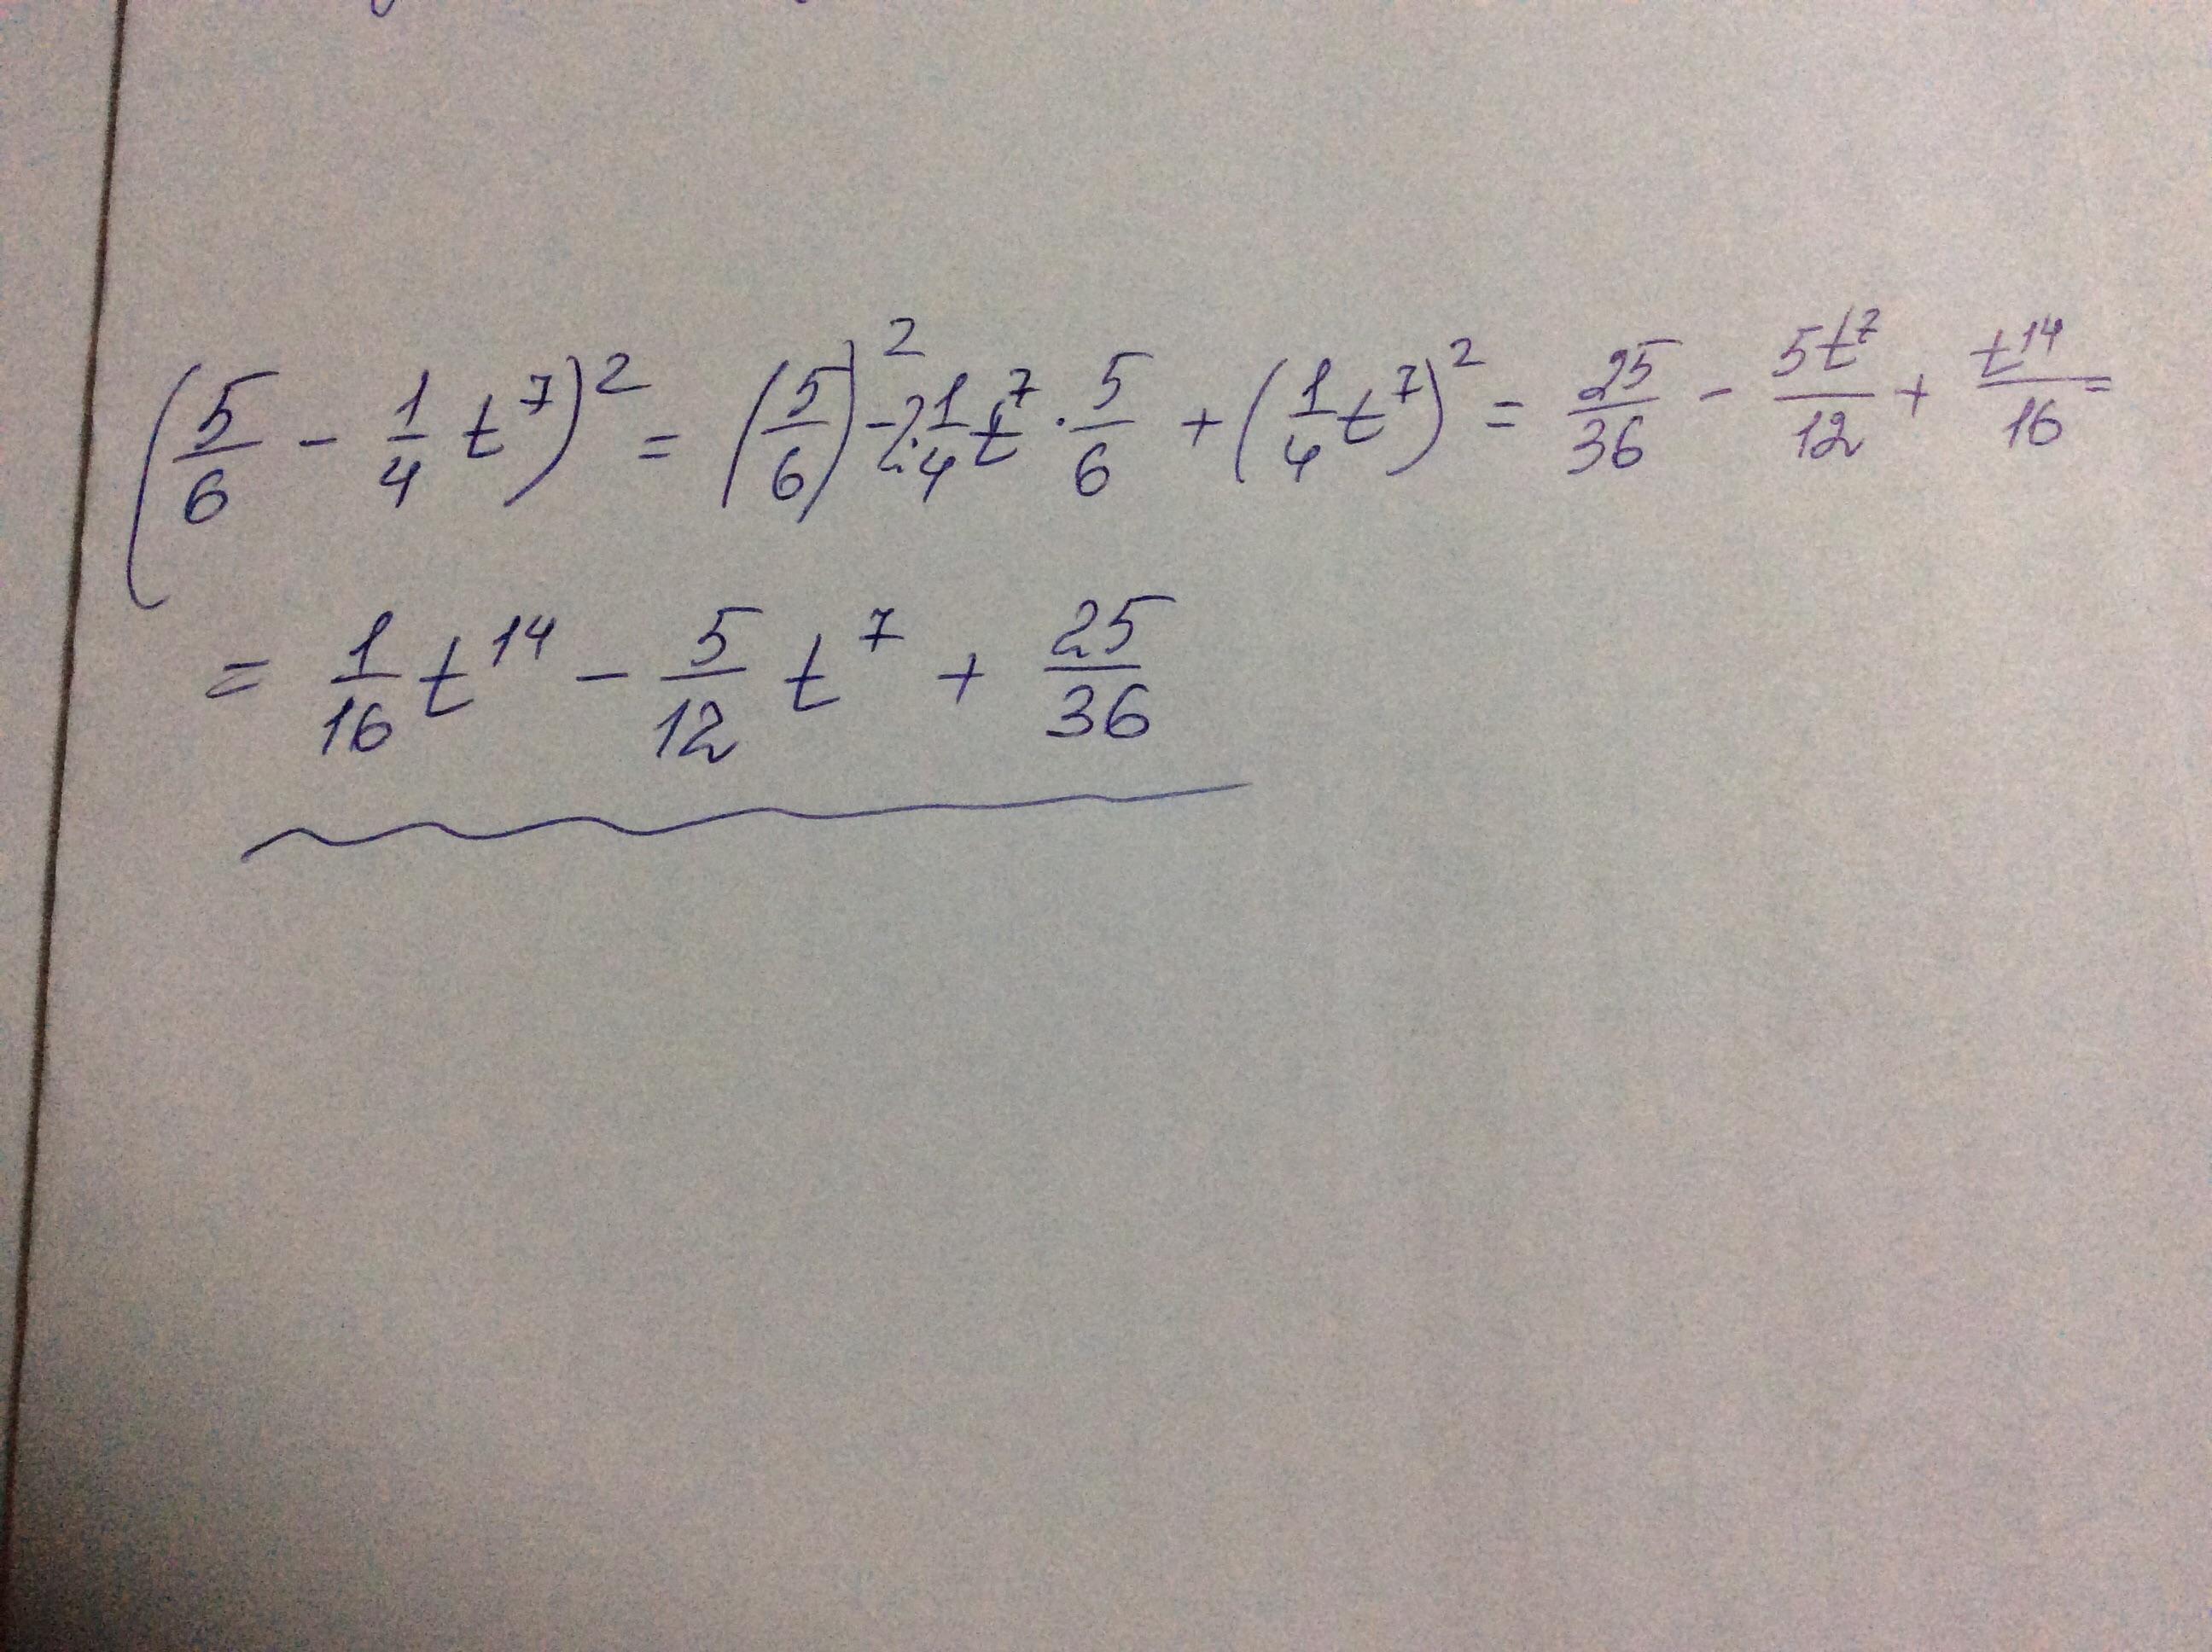 (5/6 - 1/4 t^7)^2 = (5/6)^2 - 2 · 1/4 t^7 · 5/6 + (1/4 t^7)^2 = 25/36 - 5t^7/12 + t^14/16 =
= 1/16 t^14 - 5/12 t^7 + 25/36